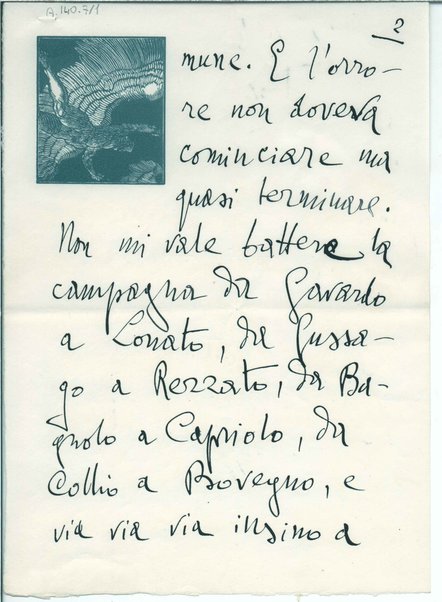 A. 140. 7/1
2
mune. E l'orro-
re non doveva
cominciare ma
quasi terminare.
Non mi vale battere la
campagna da Gavardo
a Lonato, da Gussa-
go a Rezzato, da Ba-
gnolo a Capriolo, da
Collio a Bovegno, e
via via via insino a